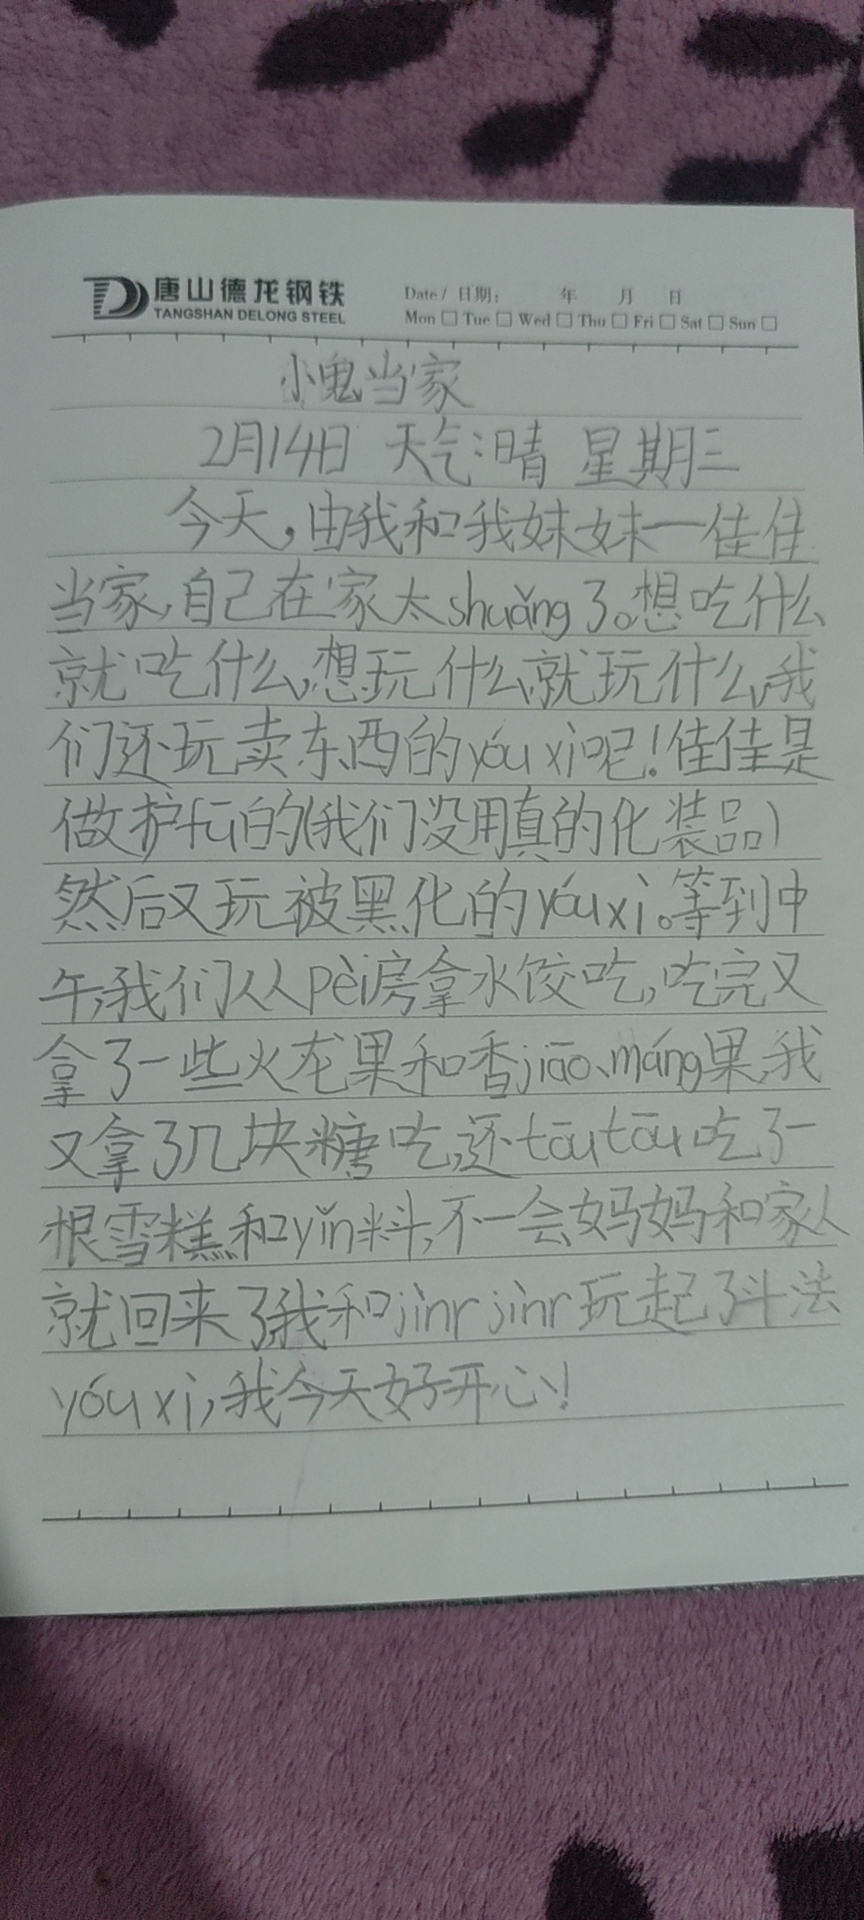 唐山德龙钢铁
TANGSHAN DELONG STEEL
Date / 日期: 年 月 日
Mon □ Tue □ Wed □ Thu □ Fri □ Sat □ Sun □
小鬼当家
2月14日 天气:晴 星期三
今天,由我和我妹妹一佳佳
当家,自己在家太shuǎng了。想吃什么
就吃什么,想玩什么就玩什么,我
们还玩卖东西的yóu xì呢!佳佳是
做护fū的(我们没用真的化装品)
然后又玩被黑化的yóu xì。等到中
午,我们从pèi房拿水饺吃,吃完又
拿了一些火龙果和香jiāo、máng果,我
又拿了几块糖吃,还tōutōu吃了一
根雪糕和yǐn料,不一会妈妈和家人
就回来了我和jìnr jìnr玩起了斗法
yóu xì,我今天好开心!